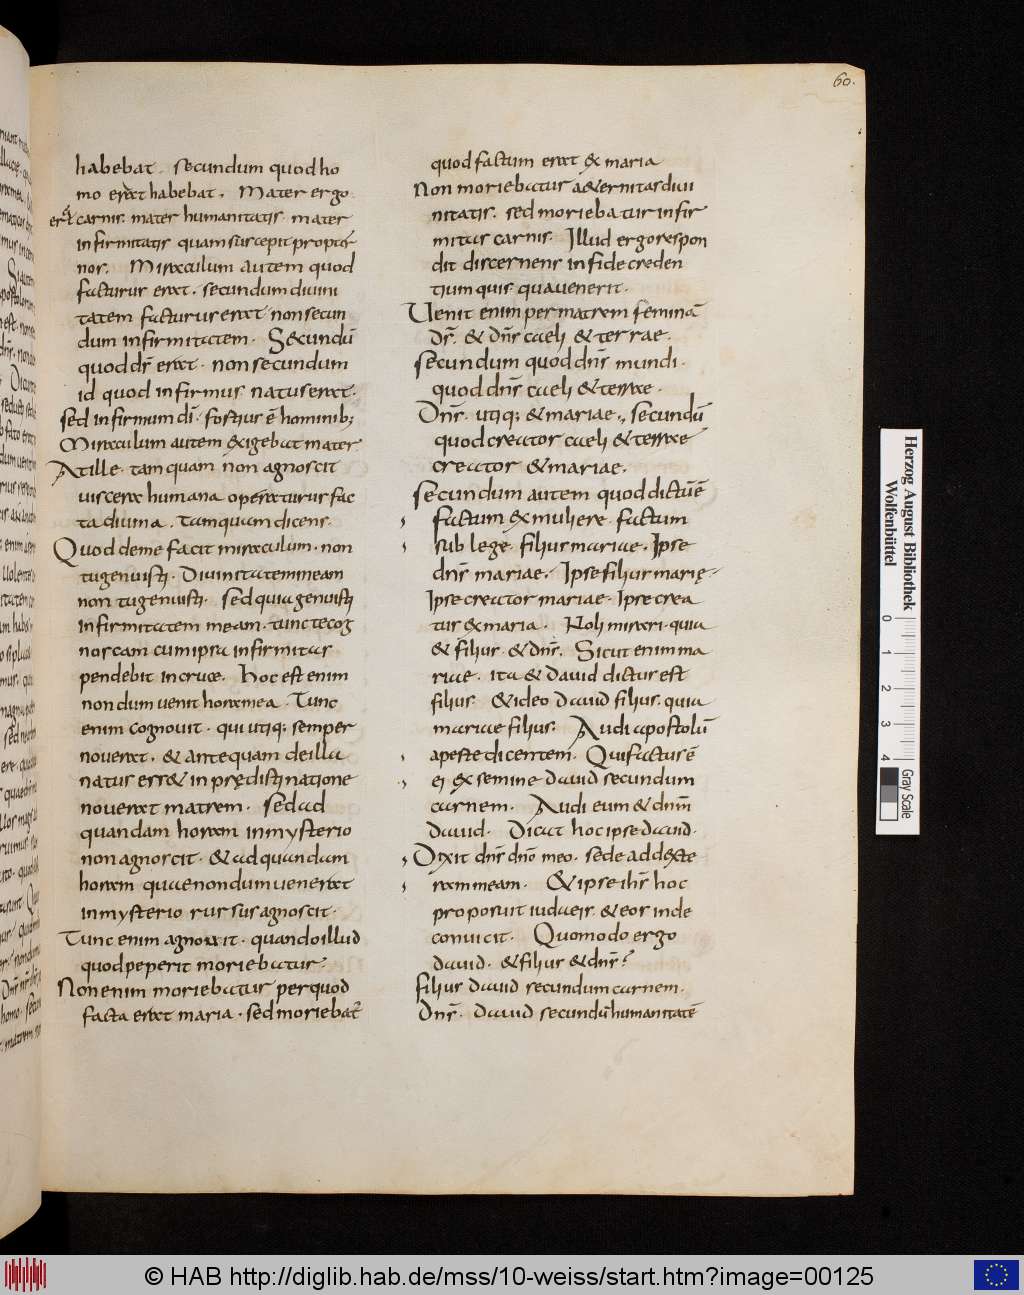 60.
habebat. secundum quod ho
mo erat habebat. Mater ergo
erat carnis. mater humanitatis. mater
infirmitatis quam suscepit propter
nos. Miraculum autem quod
facturus erat. secundum divini
tatem facturus erat non secun
dum infirmitatem. Secundū
quod dr̄ erat. non secundum
id quod infirmus natus erat.
sed infirmum dī. fortius ē hominib;
Miraculum autem exigebat mater
At ille. tamquam non agnoscit
viscera humana operaturus fac
ta divina. tamquam dicens.
Quod de me facit miraculum. non
tu genuisti. Divinitatem meam
non tu genuisti. Sed quia genuisti
infirmitatem meam. tunc te cog
noscam cum ipsa infirmitas
pendebit in cruce. Hoc est enim
nondum venit hora mea. Tunc
enim cognovit. qui utiq; semper
noverat. & antequam de illa
natus ess& in prędistinatione
noverat matrem. sed ad
quandam horam in mysterio
non agnoscit. & ad quandam
horam quae nondum venerat
in mysterio rursus agnoscit.
Tunc enim agnovit. quando illud
quod peperit moriebatur.
Non enim moriebatur per quod
facta erat maria. sed moriebat̄
quod factum erat ex maria
Non moriebatur a&ernitas divi
nitatis. sed moriebatur infir
mitas carnis. Illud ergo respon
dit discernens in fide creden
tium quis. qua venerit.
Venit enim per matrem feminā
dr̄. & dn̄r caeli & terrae.
secundum quod dn̄r mundi.
quod dn̄r caeli & terrae.
Dn̄r. utiq; & mariae., secundū
quod creator caeli & terrae
creator & mariae.
secundum autem quod dictū ē
factum ex muliere. factum
sub lege. filius mariae. Ipse
dn̄r mariae. Ipse filius marię
Ipse creator mariae. Ipse crea
tus ex maria. Noli mirari. quia
& filius & dn̄r. Sicut enim ma
riae. ita & david dictus est
filius. & ideo david filius. quia
mariae filius. Audi apostolū
aperte dicentem. Qui factus ē
ei ex semine david secundum
carnem. Audi eum & dn̄m
david. Dicat hoc ipse david.
Dixit dn̄r dn̄o meo. sede ad dexte
ram meam. & ipse ih̄r hoc
proposuit iudaeis. & eos inde
convicit. Quomodo ergo
david. & filius & dn̄r?
filius david secundum carnem.
Dn̄r. david secundū humanitatē
Herzog August Bibliothek
Wolfenbüttel
0 1 2 3 4
Gray Scale
© HAB http://diglib.hab.de/mss/10-weiss/start.htm?image=00125